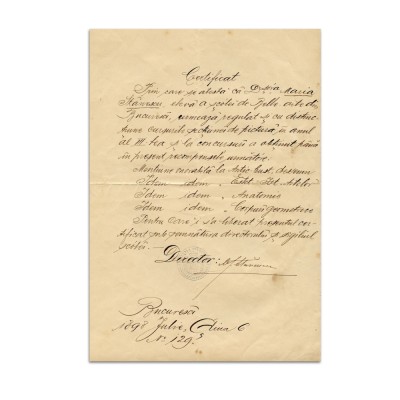 Certificat
Prin care se atestă că D-șóra Maria
Stănescu, elevă a școlei de Belle arte din
Bucuresci, urmeză regulat și cu distinc-
țiune cursurile secțiunei de pictură, in anul
al III lea și la concursuri a obținut până
in present, recompensele următore:
Mențiune
Idem idem Istor. Artelor
Idem idem " Anatomie
Idem idem "
Pentru care i s'a liberat presentul cer-
tificat sub semnătura directorului și sigiliul
școlei.
Director:
Bucuresci
1898 Julie, Diua 6
No. 129